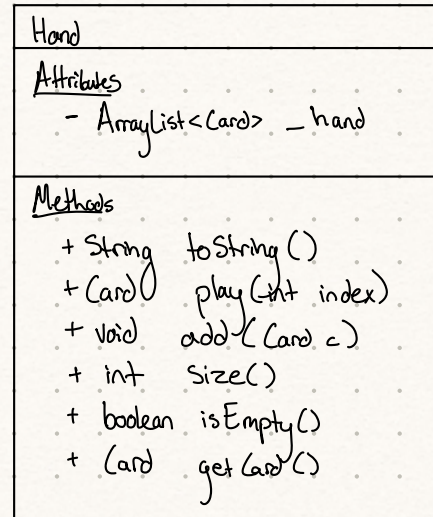 Hand
Attributes
- ArrayList<Card> _hand
Methods
+ String toString()
+ Card play(int index)
+ void add(Card c)
+ int size()
+ boolean isEmpty()
+ Card getCard()